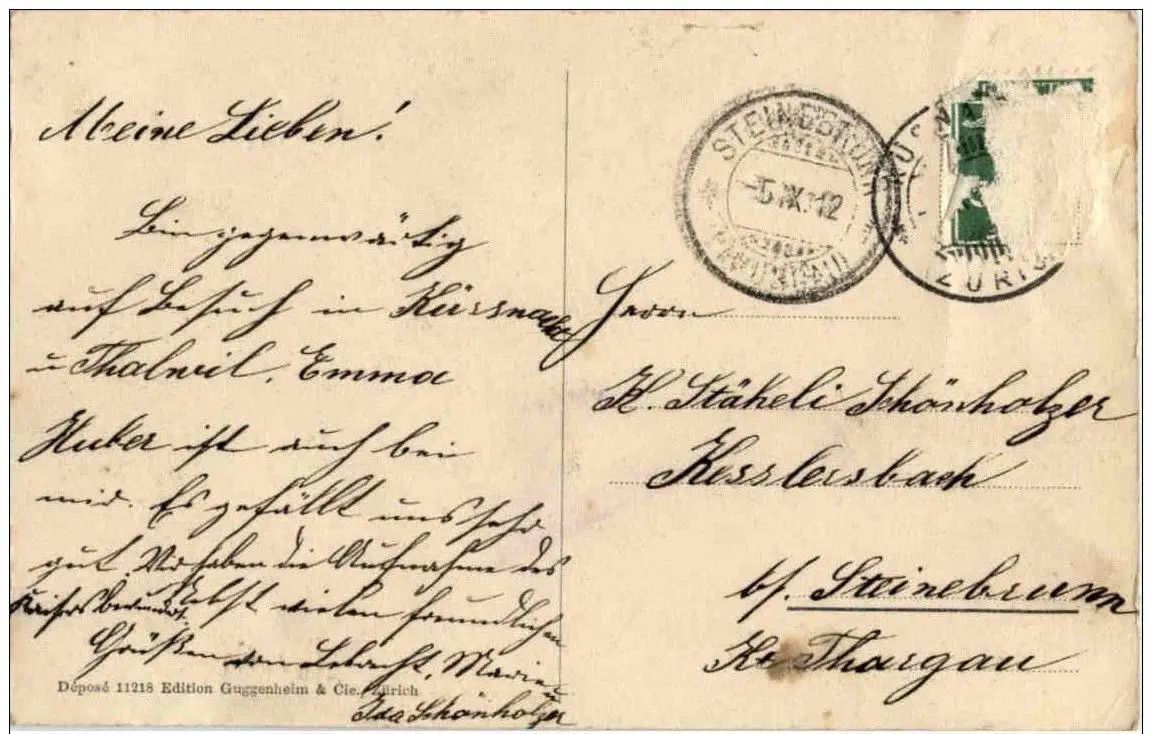 Meine Lieben!
Bin gegenwärtig
auf Besuch in Küssnacht
u Thalwil. Emma
Huber ist auch bei
mir. Es gefällt uns sehr
gut. Wir haben die Aufnahme des
Kaisers bewundert. Nebst vielen freundlichen
Grüßen von Marie u
Ida Schönholzer
Déposé 11218 Edition Guggenheim & Cie., Zürich
STEINEBRUNN
-5.IX.12
(THURGAU)
(ZÜRICH
Herrn
K. Stäheli Schönholzer
Kesslersbach
b/. Steinebrunn
Kt Thurgau